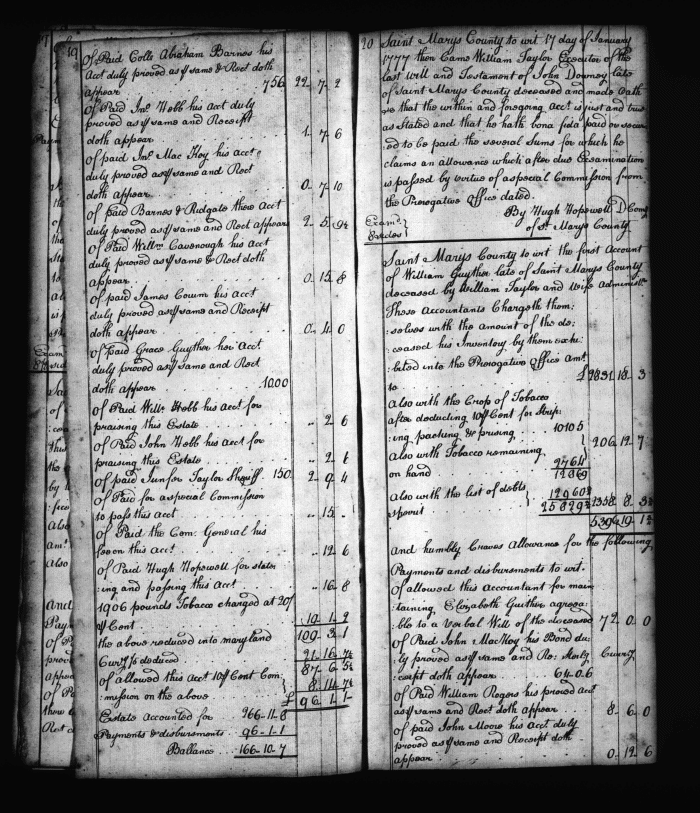 19
Of Paid Collo Abraham Barnes his
Acct duly proved as ⅌ same & Rect doth
appear 756 22. 7. 2
Of Paid Jno. Hebb his acct duly
proved as ⅌ same and Receipt
doth appear 1. 7. 6
Of paid Jno. Mac Hoy his acct
duly proved as ⅌ same and Rect
doth appear 0. 7. 10
Of paid Barnes & Ridgate there Acct
duly proved as ⅌ same and Rect appears 2. 5. 9½
Of Paid Willm. Cavenough his act
duly proved as ⅌ same & Rect doth
appear 0. 15. 8
Of paid James his Acct
duly proved as ⅌ same and Receipt
doth appear 0. 4. 0
Of paid Grace Guyther her Acct
duly proved as ⅌ same and Rect
doth appear 1000
Of Paid Willm. Hebb his Acct for
praising this Estate .. 2 6
Of Paid John Hebb his Acct for
praising this Estate .. 2 6
Of paid Junifor Taylor Sheriff 150 2. 9. 4
Of Paid for a special Commission
to pass this Acct .. 15 ..
Of Paid the Com: General his
fee on this Acct .. 12. 6
Of Paid Hugh Hopewell for stater
:ing and passing this Acct .. 16. 8
1906 pounds Tobacco charged at 20/
⅌ Cent 19. 1. 2
the above reduced into maryland 109. 3. 1
Curry. is deduced 21. 16. 7½
87. 6. 5½
Of allowed this Acct 10 ⅌ Cent Com
:mission on the above 8. 14. 7½
£ 96. 1. 1
Estate Accounted for 266-11-8
Payments & disbursments 96-1-1
Ballance 166-10-7
20
Saint Marys County to wit 17 day of January
1777 then Came William Taylor Executor of the
last Will and Testament of John Downey late
of Saint Marys County deceased and made Oath
that the within and foregoing Acct is just and true
as Stated and that he hath bona fida paid or secur
ed to be paid the several Sums for which he
claims an allowance which after due Examination
is passed by virtue of a special Commission from
the Prerogative Office dated.
By Hugh Hopewell D Comy
of St. Marys County
Examd.
Saint Marys County to wit the first Account
of William Guyther late of Saint Marys County
deceased by William Taylor and Wife Administrs
These Accountants Chargeth them:
:selves with the amount of the de:
:ceased his Inventory by them exhi:
:bited into the Prerogative Office Amt.
to £ 9831. 18. 3
Also with the Crop of Tobacco
after deducting ⅌ Cent for Strip:
:ing packing & prising 10105
Also with Tobacco remaining 206. 12. 7
on hand 2764
12869
Also with the list of debts 12960½
sperit 25829½ 1358. 8. 3½
5396. 19. 1½
and humbly Craves Allowance for the following
Payments and disbursments to wit.
Of allowed this Accountant for main
:taining Elizabeth Guither agreea:
:ble to a Verbal Will of the deceased 72. 0. 0
Of Paid John MacHoy his Bond du:
:ly proved as ⅌ same and Re: Marld. Curry
:ceipt doth appear 64-0.6
Of Paid William Rogers his proved Acct
as ⅌ same and Rect doth appear 8. 6. 0
Of paid John Moore his Acct duly
proved as ⅌ same and Receipt doth
appear 0. 12. 6